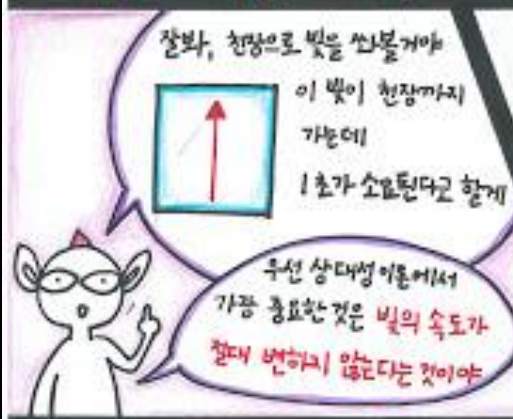 잘봐, 천장으로 빛을 쏴볼거야
이 빛이 천장까지
가는데
1초가 소요된다고 할게
우선 상대성이론에서
가장 중요한것은 빛의 속도가
절대 변하지 않는다는 것이야